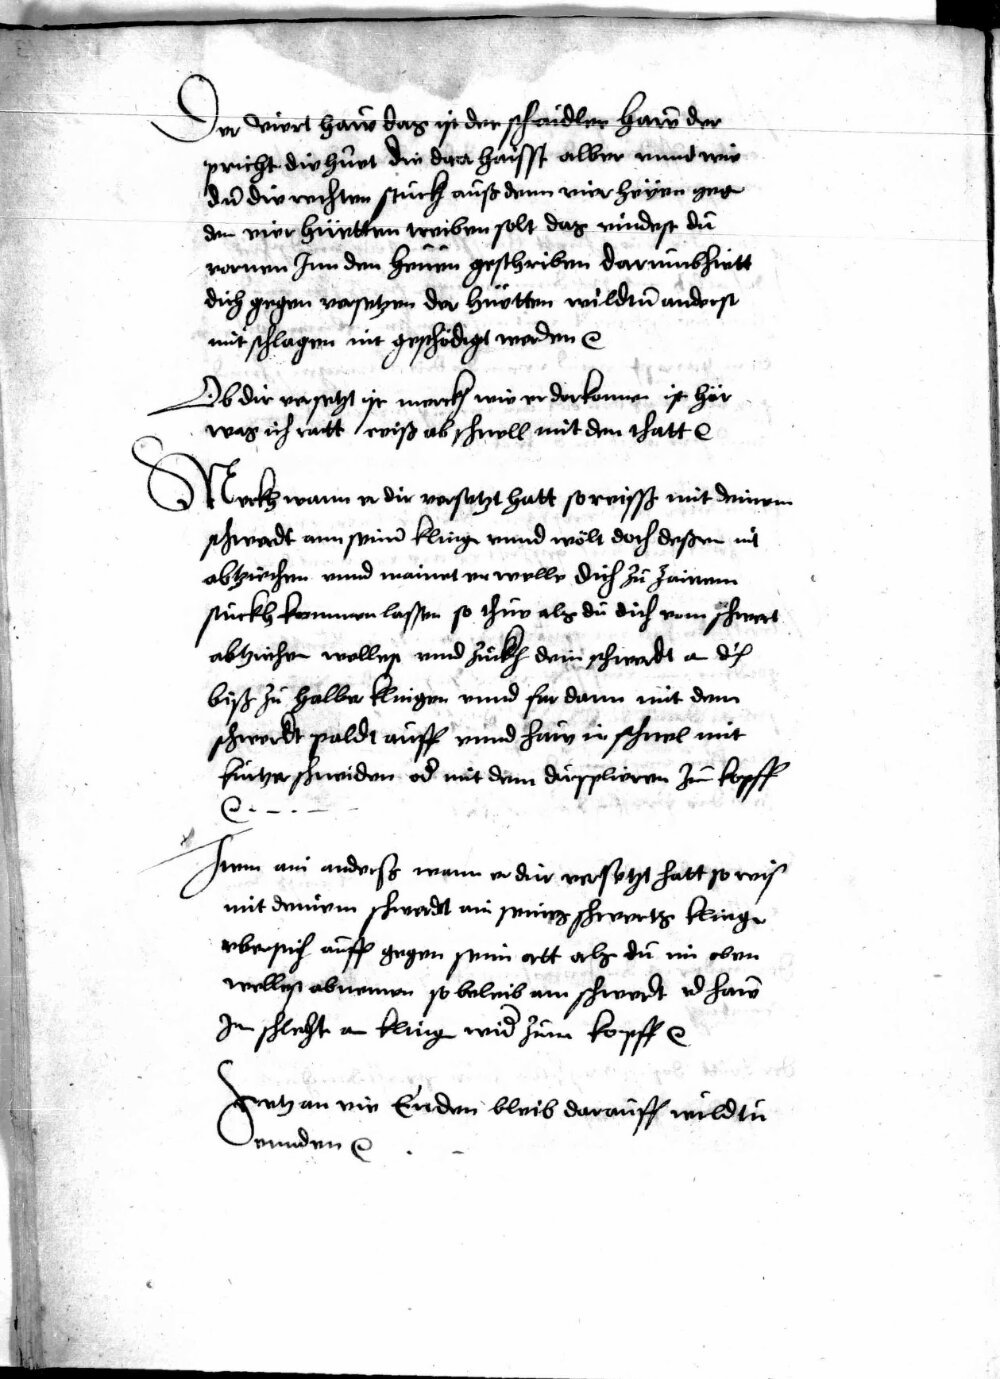 Der viert haw das ist der schaidler haw der
pricht die hŭt die da haisst alber vnnd wie
dŭ die rechten stuckh auß denn vier heẅen geg
den vier hüetten treiben solt das vindest dŭ
vornen Inn den heŭen geschriben darumb hiett
dich gegen versetzen der hüetten wildtŭ anderst
mit schlagen nit geschödigt werden
Ob dir versetzt ist merckh wie er dar komen ist hör
was ich ratt reiß ab schnell mit den thatt
Merckh wann er dir versetzt hatt so reisst mit deinem
schwerdt ann seine kling vnnd wölt doch deßen nit
abziechen vnnd mainet er welle dich zŭ kainem
stuckh kommen lassen so thŭe als dŭ dich vom schwert
abziechen wellest vnnd zŭckh dein schwerdt a dich
biß zŭ halber klingen vnnd far dann mit dem
schwerdt paldt auff vnnd haw in schnel mit
kurtzer schneiden od mit dem dupplieren zum kopff
Item ain anderß wann er dir versetzt hatt so reis
mit deinem schwerdt an seines schwertz kling
vbersich auff gegen seim ortt als dŭ im oben
wellest abnemen so beleib am schwerdt vnd haw
Im schlecht a kling wid zum kopff
Setz an vier Enden bleib darauff wildtŭ
Eennden